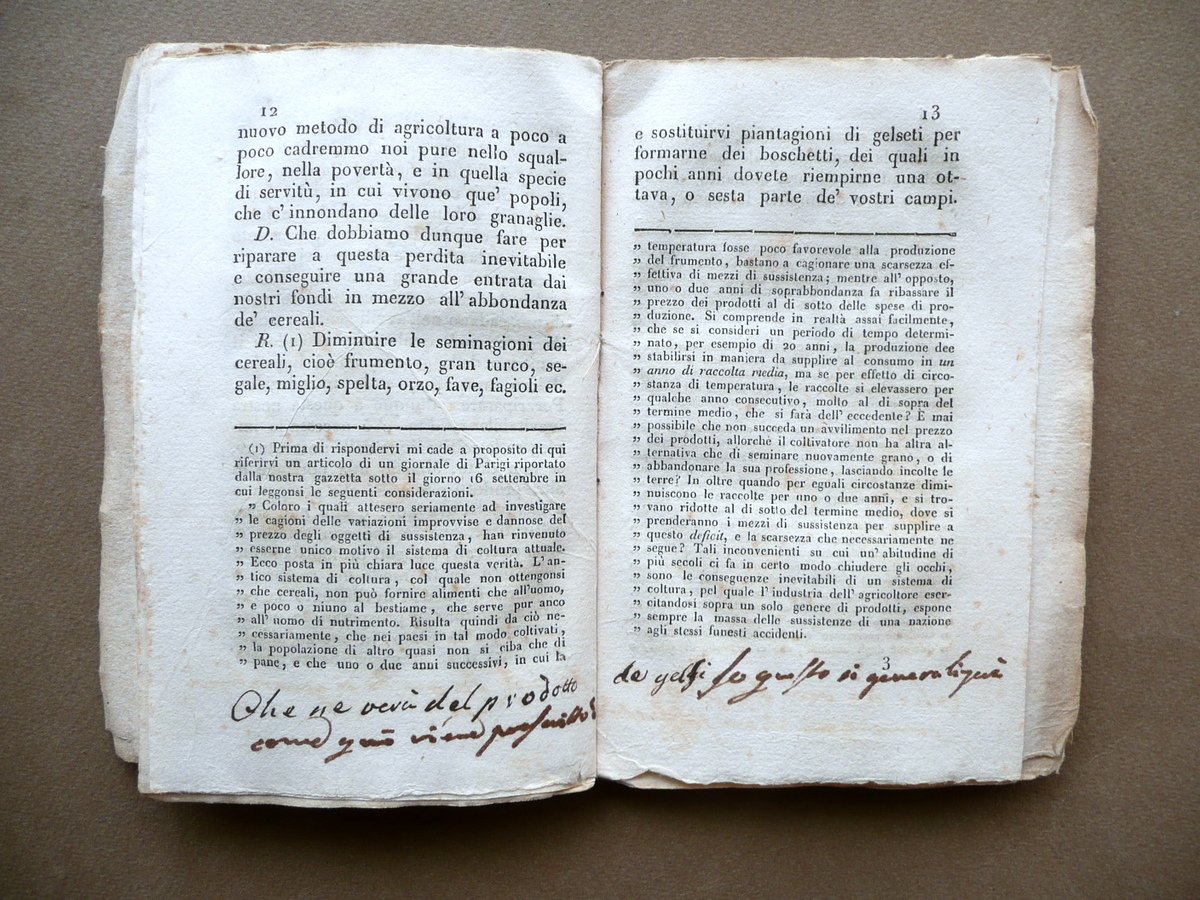 12
nuovo metodo di agricoltura a poco a
poco cadremmo noi pure nello squal-
lore, nella povertà, e in quella specie
di servitù, in cui vivono que' popoli,
che c'innondano delle loro granaglie.
D. Che dobbiamo dunque fare per
riparare a questa perdita inevitabile
e conseguire una grande entrata dai
nostri fondi in mezzo all'abbondanza
de' cereali.
R. (1) Diminuire le seminagioni dei
cereali, cioè frumento, gran turco, se-
gale, miglio, spelta, orzo, fave, fagioli ec.
(1) Prima di rispondervi mi cade a proposito di qui
riferirvi un articolo di un giornale di Parigi riportato
dalla nostra gazzetta sotto il giorno 16 settembre in
cui leggonsi le seguenti considerazioni.
„ Coloro i quali attesero seriamente ad investigare
„ le cagioni delle variazioni improvvise e dannose del
„ prezzo degli oggetti di sussistenza, han rinvenuto
„ esserne unico motivo il sistema di coltura attuale.
„ Ecco posta in più chiara luce questa verità. L'an-
„ tico sistema di coltura, col quale non ottengonsi
„ che cereali, non può fornire alimenti che all'uomo,
„ e poco o niuno al bestiame, che serve pur anco
„ all'uomo di nutrimento. Risulta quindi da ciò ne-
„ cessariamente, che nei paesi in tal modo coltivati,
„ la popolazione di altro quasi non si ciba che di
„ pane, e che uno o due anni successivi, in cui la
Che ne verà del prodotto
13
e sostituirvi piantagioni di gelseti per
formarne dei boschetti, dei quali in
pochi anni dovete riempirne una ot-
tava, o sesta parte de' vostri campi.
„ temperatura fosse poco favorevole alla produzione
„ del frumento, bastano a cagionare una scarsezza ef-
„ fettiva di mezzi di sussistenza; mentre all'opposto,
„ uno o due anni di soprabbondanza fa ribassare il
„ prezzo dei prodotti al di sotto delle spese di pro-
„ duzione. Si comprende in realtà assai facilmente,
„ che se si consideri un periodo di tempo determi-
„ nato, per esempio di 20 anni, la produzione dee
„ stabilirsi in maniera da supplire al consumo in un
„ anno di raccolta media, ma se per effetto di circo-
„ stanza di temperatura, le raccolte si elevassero per
„ qualche anno consecutivo, molto al di sopra del
„ termine medio, che si farà dell'eccedente? È mai
„ possibile che non succeda un avvilimento nel prezzo
„ dei prodotti, allorchè il coltivatore non ha altra al-
„ ternativa che di seminare nuovamente grano, o di
„ abbandonare la sua professione, lasciando incolte le
„ terre? In oltre quando per eguali circostanze dimi-
„ nuiscono le raccolte per uno o due anni, e si tro-
„ vano ridotte al di sotto del termine medio, dove si
„ prenderanno i mezzi di sussistenza per supplire a
„ questo deficit, e la scarsezza che necessariamente ne
„ segue? Tali inconvenienti su cui un'abitudine di
„ più secoli ci fa in certo modo chiudere gli occhi,
„ sono le conseguenze inevitabili di un sistema di
„ coltura, pel quale l'industria dell'agricoltore eser-
„ citandosi sopra un solo genere di prodotti, espone
„ sempre la massa delle sussistenze di una nazione
„ agli stessi funesti accidenti.
3
de gelsi se questo si generalizzerà